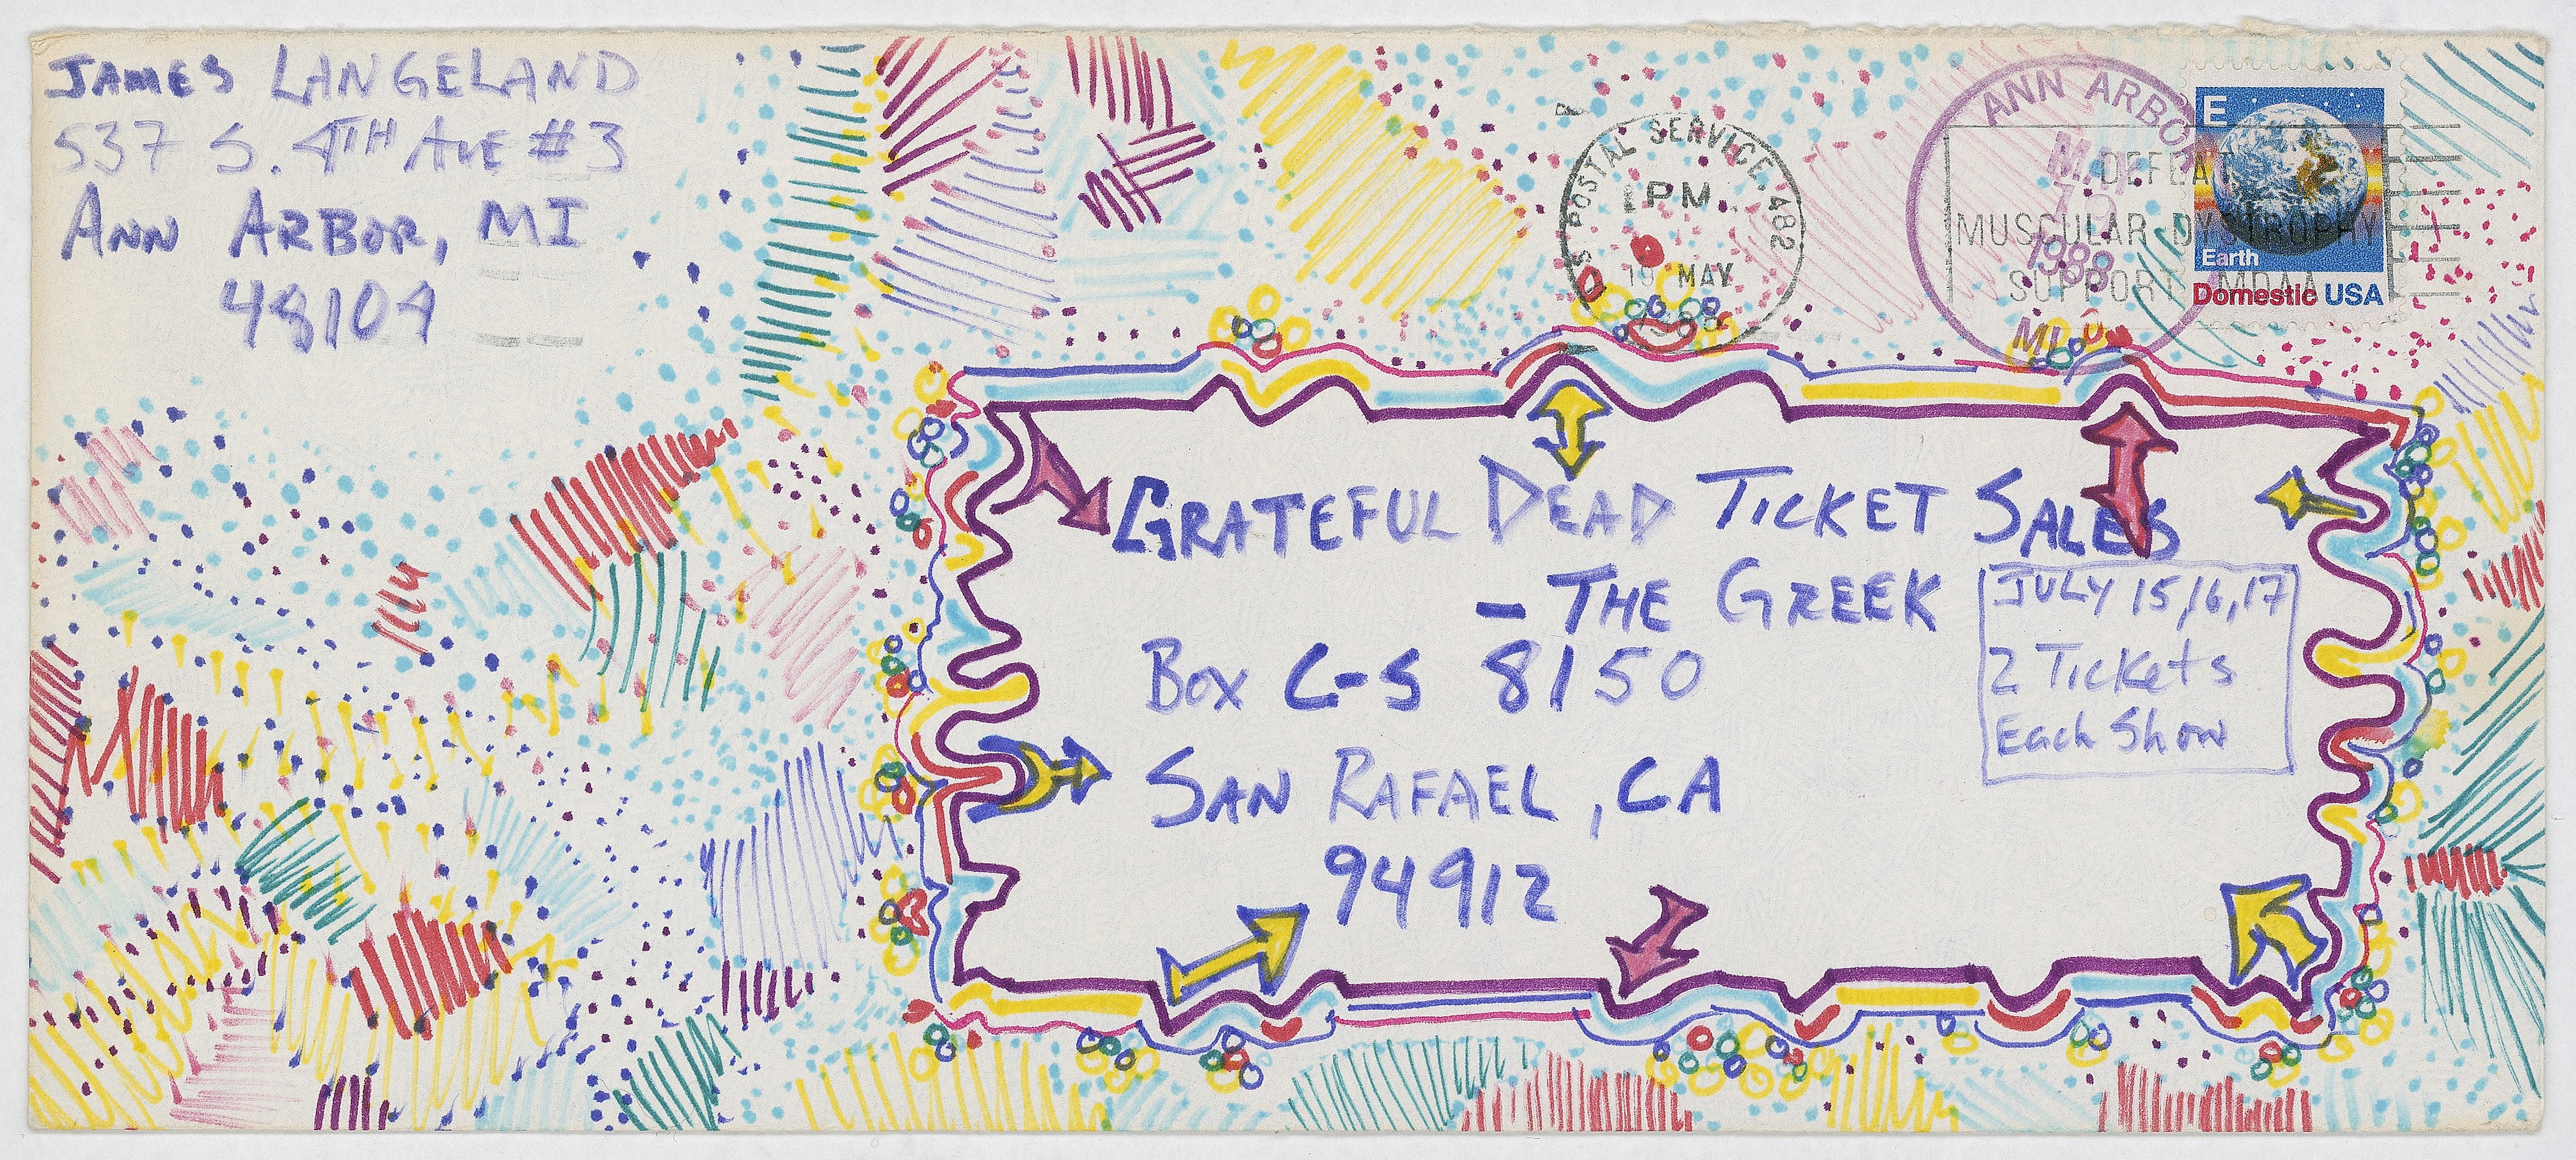 JAMES LANGELAND
537 S. 4TH AVE #3
ANN ARBOR, MI
48104
S POSTAL SERVICE 482
1 PM
19 MAY
ANN ARBOR
MAY
19
1988
MI
DEFEAT
MUSCULAR DYSTROPHY
SUPPORT MDAA
E
Earth
Domestic USA
GRATEFUL DEAD TICKET SALES
- THE GREEK
BOX C-S 8150
SAN RAFAEL, CA
94912
JULY 15,16,17
2 Tickets
Each Show